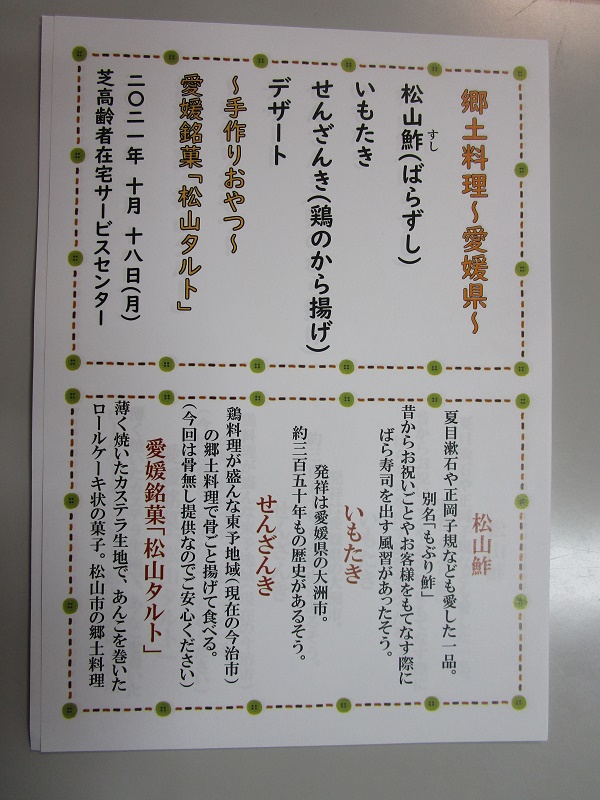 郷土料理～愛媛県～
松山鮓(ばらずし)
すし
いもたき
せんざんき(鶏のから揚げ)
デザート
～手作りおやつ～
愛媛銘菓「松山タルト」
二〇二一年 十月 十八日(月)
芝高齢者在宅サービスセンター
松山鮓
夏目漱石や正岡子規なども愛した一品。
別名「もぶり鮓」
昔からお祝いごとやお客様をもてなす際に
ばら寿司を出す風習があったそう。
いもたき
発祥は愛媛県の大洲市。
約三百五十年もの歴史があるそう。
せんざんき
鶏料理が盛んな東予地域(現在の今治市)
の郷土料理で骨ごと揚げて食べる。
(今回は骨無し提供なのでご安心ください)
愛媛銘菓「松山タルト」
薄く焼いたカステラ生地で、あんこを巻いた
ロールケーキ状の菓子。松山市の郷土料理